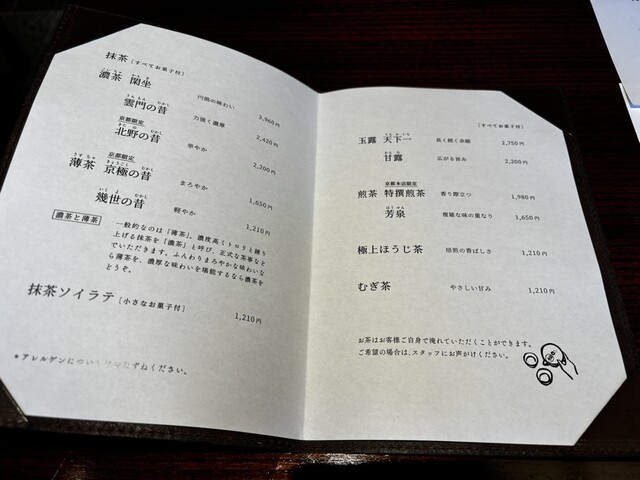 抹茶［すべてお菓子付］
濃茶 閑坐 円熟の味わい 3,960円
雲門の昔 力強く濃厚 2,420円
京都限定
北野の昔 華やか 2,200円
京都限定
薄茶 京極の昔 まろやか 1,650円
幾世の昔 軽やか 1,210円
濃茶と薄茶
一般的なのは「薄茶」、濃度高くトロリと練り
上げる抹茶を「濃茶」と呼び、正式な茶事など
でいただきます。ふんわりまろやかな味わいな
ら薄茶を、濃厚な味わいを堪能するなら濃茶を
どうぞ。
抹茶ソイラテ［小さなお菓子付］ 1,210円
*アレルゲンについ ずねください。
［すべてお菓子付］
玉露 天下一 長く続く余韻 2,750円
甘露 広がる旨み 2,200円
京都本店限定
煎茶 特撰煎茶 香り際立つ 1,980円
芳泉 複雑な味の重なり 1,650円
極上ほうじ茶 焙煎の香ばしさ 1,210円
むぎ茶 やさしい甘み 1,210円
お茶はお客様ご自身で淹れていただくことができます。
ご希望の場合は、スタッフにお声がけください。